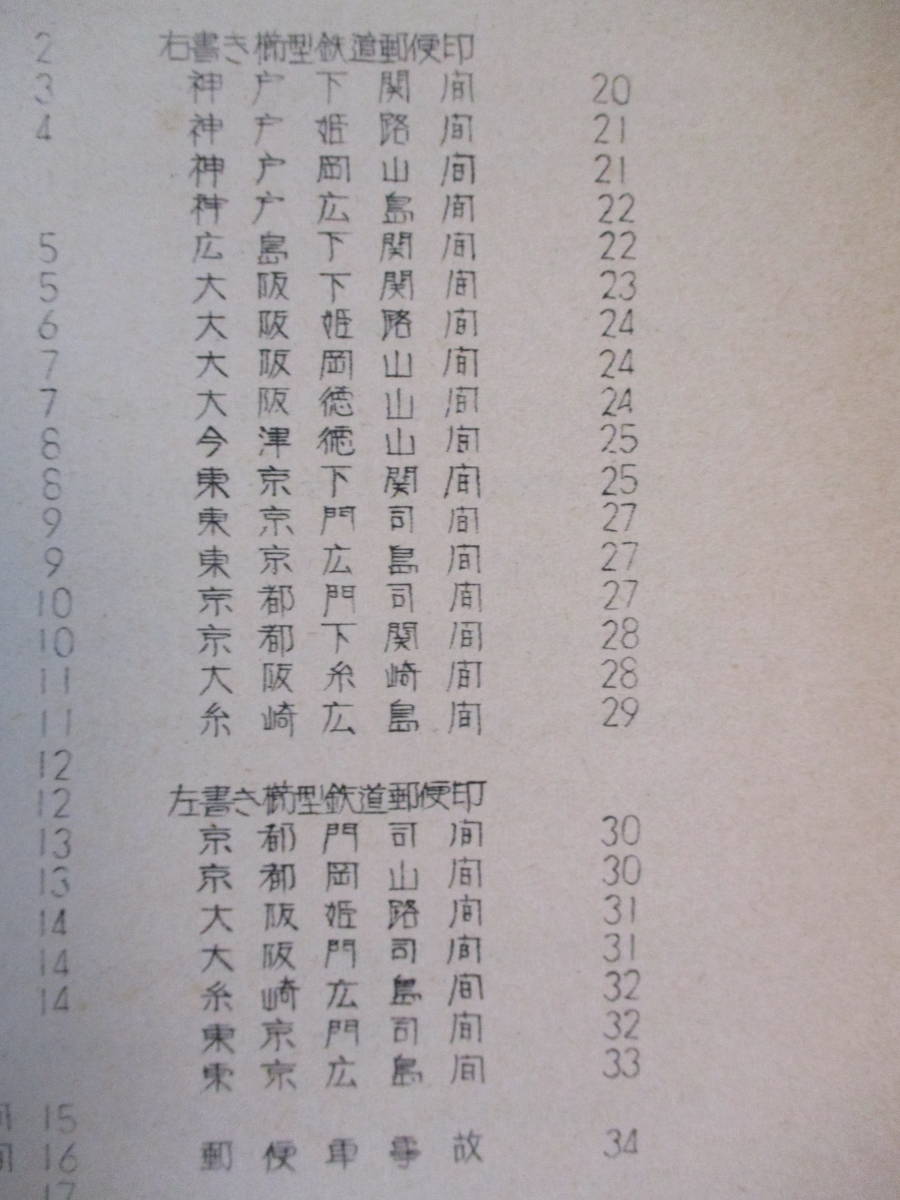 2
3
4
5
5
6
7
7
8
8
9
9
10
10
11
11
12
12
13
13
14
14
14
間 15
間 16
17
右書き櫛型鉄道郵便印
神戸下関間 20
神戸姫路間 21
神戸岡山間 21
神戸広島間 22
広島下関間 22
大阪下関間 23
大阪姫路間 24
大阪岡山間 24
大阪徳山間 24
今津徳山間 25
東京下関間 25
東京門司間 27
東京広島間 27
京都門司間 27
京都下関間 28
大阪糸崎間 28
糸崎広島間 29
左書き櫛型鉄道郵便印
京都門司間 30
京都岡山間 30
大阪姫路間 31
大阪門司間 31
糸崎広島間 32
東京門司間 32
東京広島間 33
郵便車事故 34